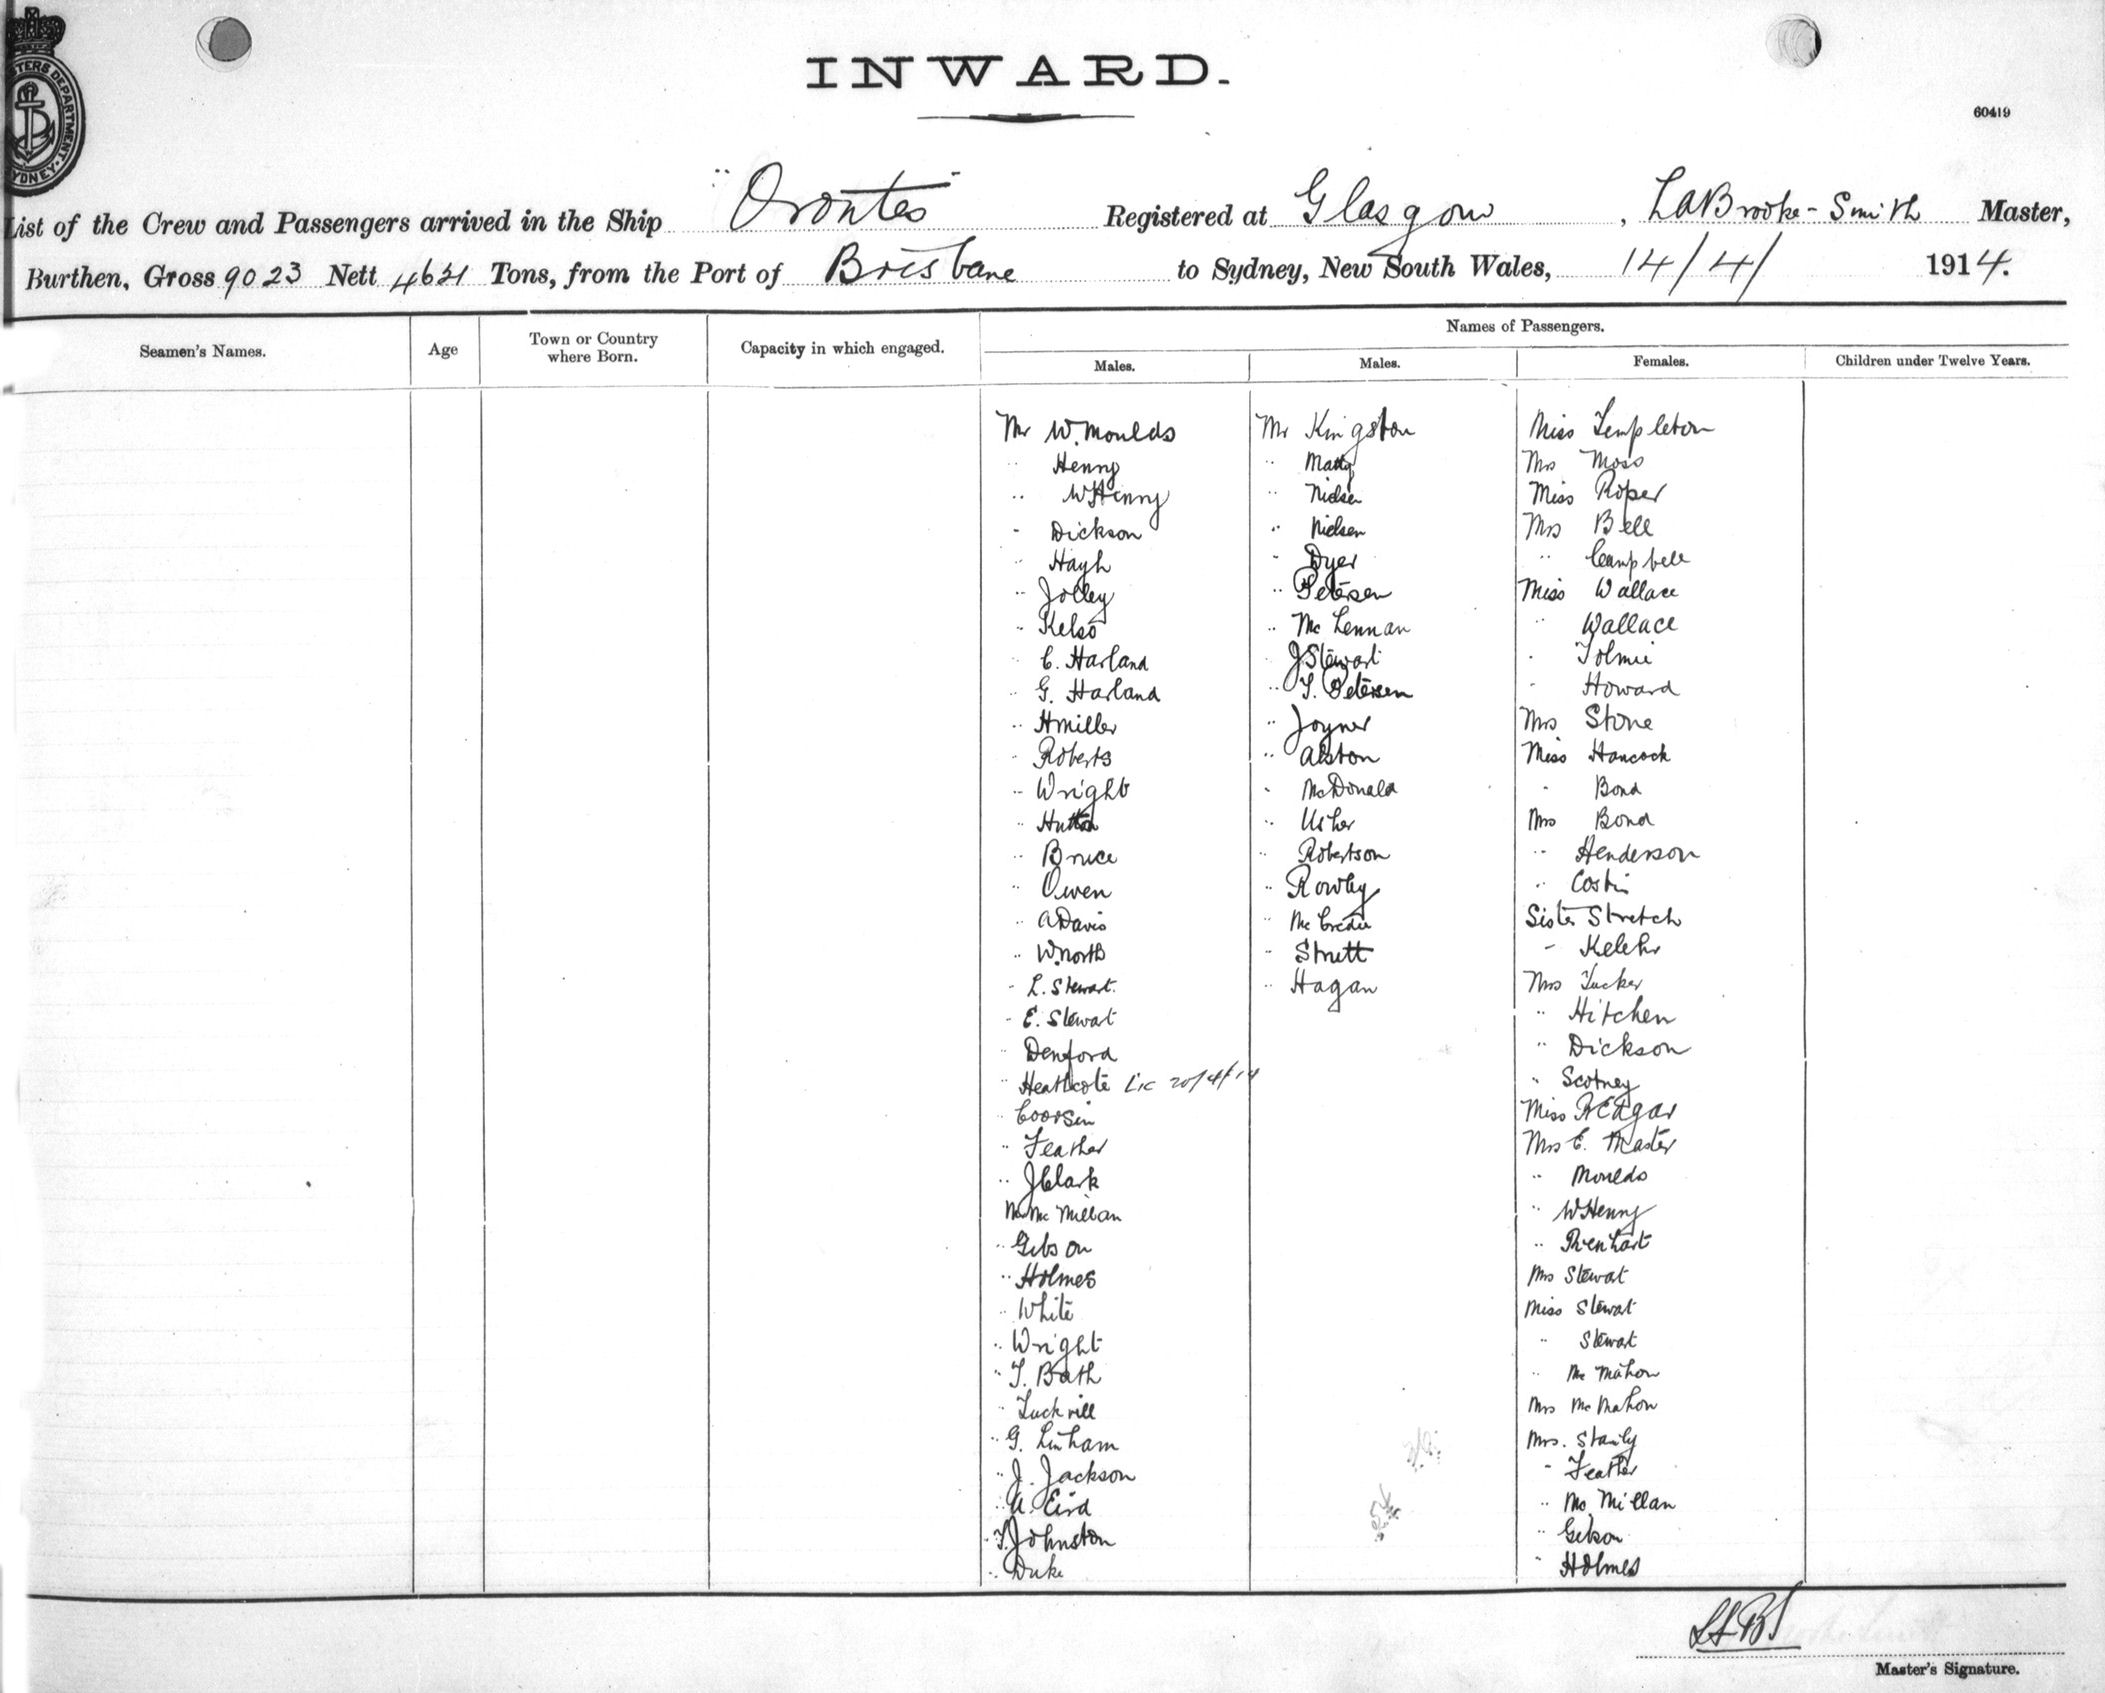 INWARD.
60419
List of the Crew and Passengers arrived in the Ship "Orontes" Registered at Glasgow, L A Brooke-Smith Master,
Burthen, Gross 9023 Nett 4631 Tons, from the Port of Brisbane to Sydney, New South Wales, 14/4/ 1914.
Seamen's Names. Age Town or Country where Born. Capacity in which engaged. Names of Passengers.
Males. Males. Females. Children under Twelve Years.
Mr W. Moulds Mr Kingston Miss Templeton
" Henny " Matty Mrs Moss
" W Henny " Nielsen Miss Roper
" Dickson " Nielsen Mrs Bell
" Hayh " Dyer " Campbell
" Jolley " Petersen Miss Wallace
" Kelso " Mc Lennan " Wallace
" C. Harland J Stewart " Tolmie
" G. Harland " T. Petersen " Howard
" H Miller " Joyner Mrs Stone
" Roberts " Alston Miss Hancock
" Wright " McDonald " Bond
" Hutton " Usher Mrs Bond
" Bruce " Robertson " Henderson
" Owen " Rowley " Costin
" A Davis " Mc Credie Sister Stretch
" W. North " Strutt " Kelehr
" L. Stewart. " Hagan Mrs Tucker
" E. Stewart " Hitchen
" Denford " Dickson
" Heathcote Lic 20/4/14 " Scotney
" Coorsin Miss R Edgar
" Feather Mrs E. Master
" J Clark " Moulds
Mr Mc Millan " W Henny
" Gibson " Rienhart
" Holmes Mrs Stewart
" White Miss Stewart
" Wright " Stewart
" T. Bath " Mc Mahon
" Tuckvill Mrs Mc Mahon
" G. Linham Mrs. Stanly
" J. Jackson " Feather
" A. Eird " Mc Millan
" T. Johnston " Gibson
" Duke " Holmes
Master's Signature.